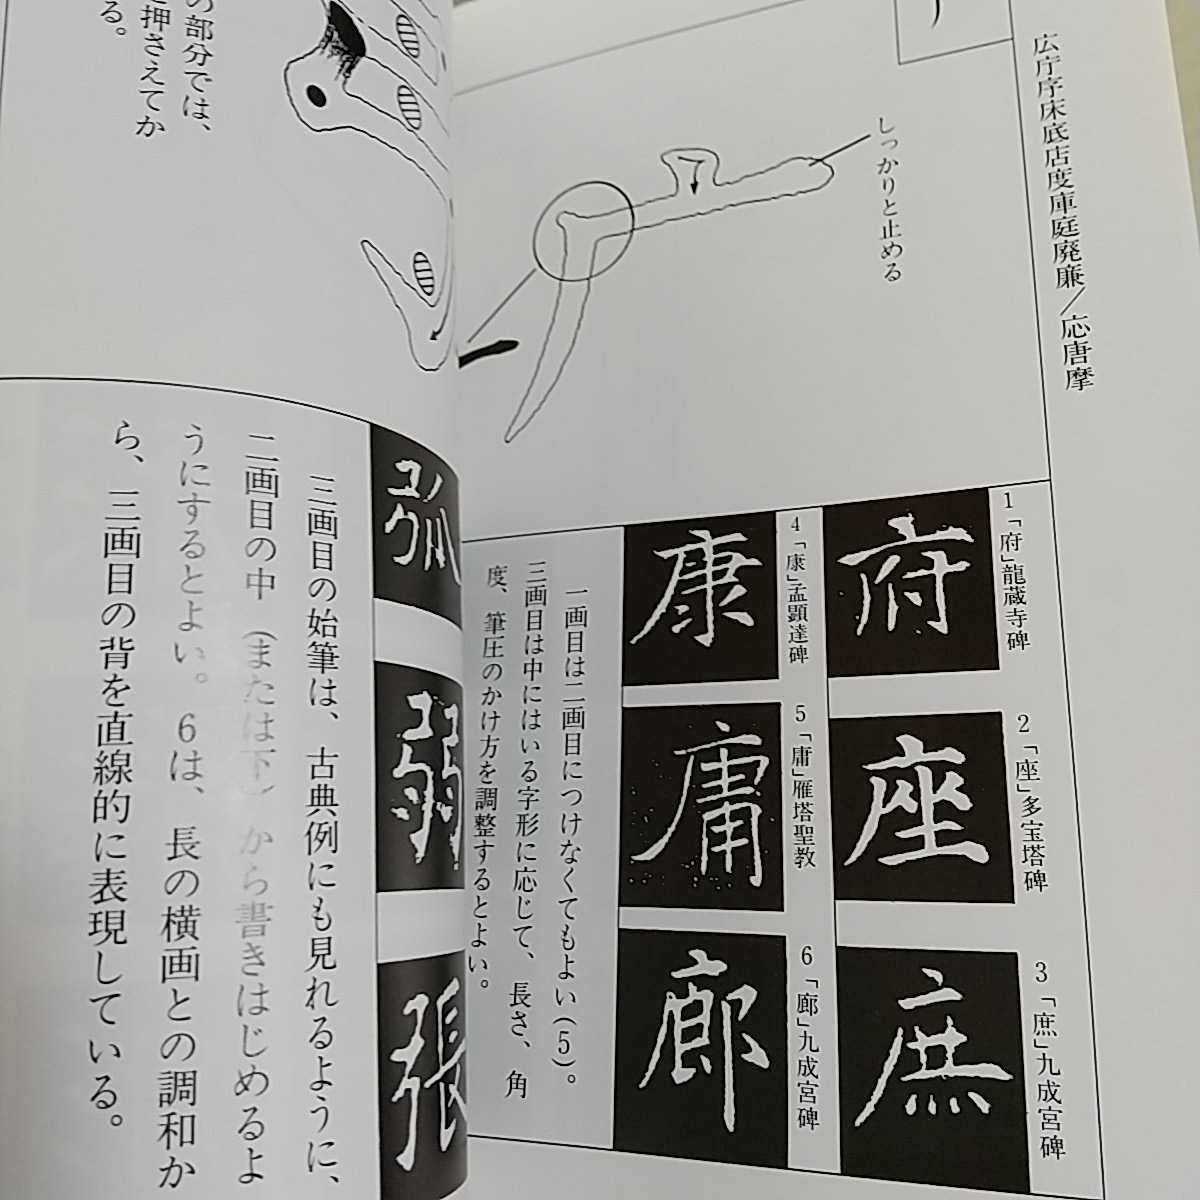 広庁序床底店度庫庭廃廉／応唐摩
しっかりと止める
1「府」龍蔵寺碑
2「座」多宝塔碑
3「庶」九成宮碑
4「康」孟顕達碑
5「庸」雁塔聖教
6「廊」九成宮碑
府
座
庶
康
庸
廊
一画目は二画目につけなくてもよい（5）。
三画目は中にはいる字形に応じて、長さ、角
度、筆圧のかけ方を調整するとよい。
の部分では、
押さえてか
る。
弧
弱
張
三画目の始筆は、古典例にも見れるように、
二画目の中（または下）から書きはじめるよ
うにするとよい。6は、長の横画との調和か
ら、三画目の背を直線的に表現している。